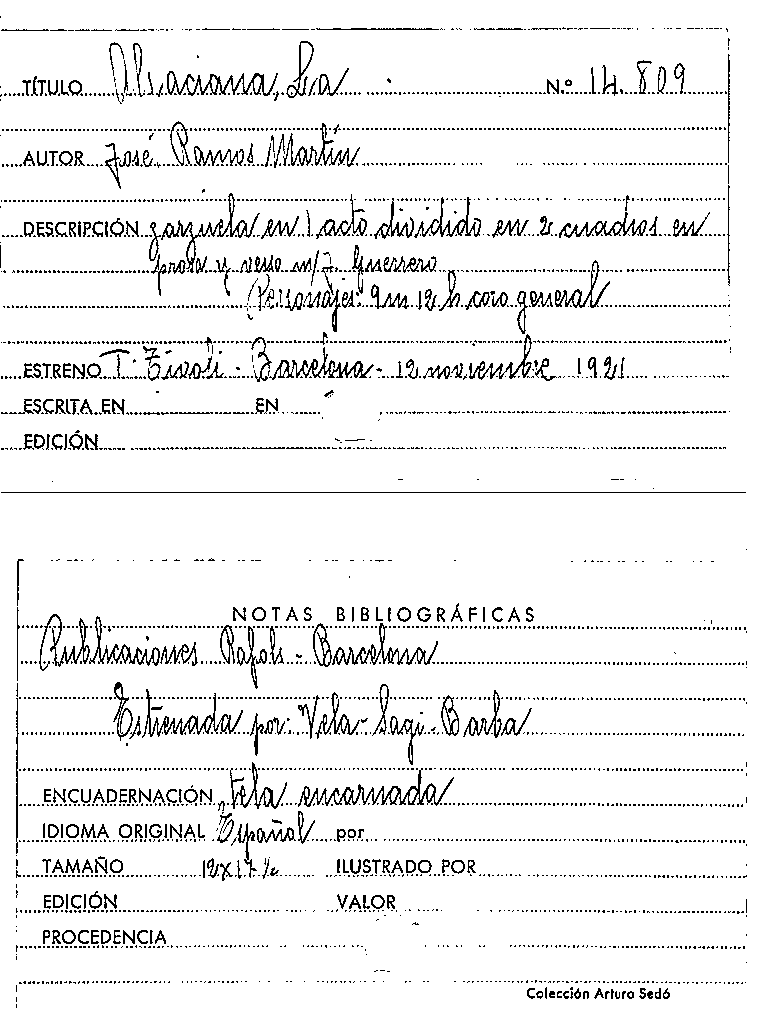 TÍTULO Alsaciana, La N.º 14.809
AUTOR José Ramos Martín
DESCRIPCIÓN zarzuela en 1 acto dividido en 2 cuadros en
prosa y verso m/ J. Guerrero
(Personajes: 9 m 12 h coro general
ESTRENO T. Tívoli - Barcelona - 12 noviembre 1921
ESCRITA EN EN
EDICIÓN
NOTAS BIBLIOGRÁFICAS
Publicaciones Rafols - Barcelona
Estrenada por: Vela - Sagi - Barba
ENCUADERNACIÓN tela encarnada
IDIOMA ORIGINAL Español por
TAMAÑO 12x17 ½ ILUSTRADO POR
EDICIÓN VALOR
PROCEDENCIA
Colección Arturo Sedó